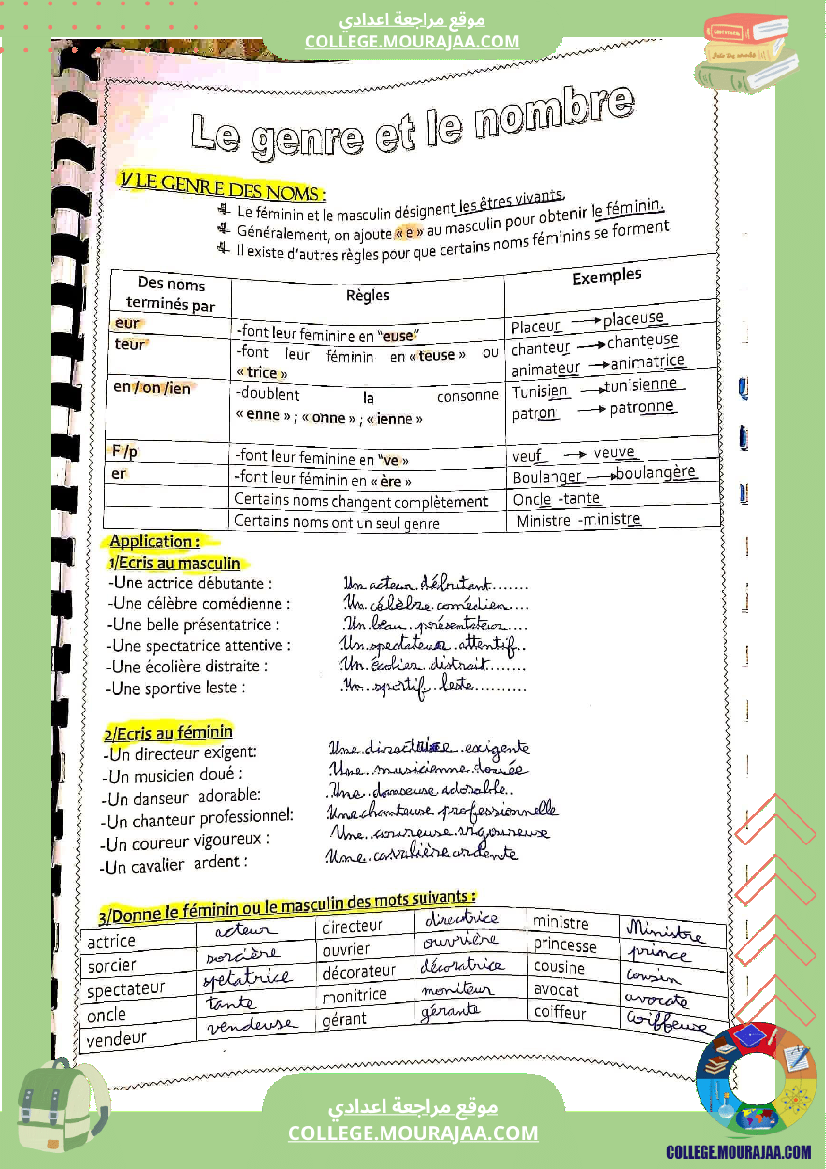 موقع مراجعة اعدادي
COLLEGE.MOURAJAA.COM
Le genre et le nombre
1/ LE GENRE DES NOMS :
Le féminin et le masculin désignent les êtres vivants.
Généralement, on ajoute « e » au masculin pour obtenir le féminin.
Il existe d'autres règles pour que certains noms féminins se forment
Des noms terminés par Règles Exemples
eur -font leur feminine en "euse" Placeur → placeuse
teur -font leur féminin en « teuse » ou « trice » chanteur → chanteuse
animateur → animatrice
en / on /ien -doublent la consonne Tunisien → tunisienne
« enne » ; « onne » ; « ienne » patron → patronne
F /p -font leur feminine en "ve » veuf → veuve
er -font leur féminin en « ère » Boulanger → boulangère
Certains noms changent complètement Oncle -tante
Certains noms ont un seul genre Ministre -ministre
Application :
1/Ecris au masculin
-Une actrice débutante : Un acteur débutant.......
-Une célèbre comédienne : Un célèbre comédien....
-Une belle présentatrice : Un beau présentateur....
-Une spectatrice attentive : Un spectateur attentif..
-Une écolière distraite : Un écolier distrait.......
-Une sportive leste : Un sportif leste..........
2/Ecris au féminin
-Un directeur exigent: Une directrice exigente
-Un musicien doué : Une musicienne douée
-Un danseur adorable: Une danseuse adorable..
-Un chanteur professionnel: Une chanteuse professionnelle
-Un coureur vigoureux : Une coureuse vigoureuse
-Un cavalier ardent : Une cavalière ardente
3/Donne le féminin ou le masculin des mots suivants :
actrice acteur cirecteur directrice ministre Ministre
sorcier sorcière ouvrier ouvrière princesse prince
spectateur spetatrice décorateur décoratrice cousine cousin
oncle tante monitrice moniteur avocat avocate
vendeur vendeuse gérant gérante coiffeur coiffeuse
موقع مراجعة اعدادي
COLLEGE.MOURAJAA.COM
COLLEGE.MOURAJAA.COM